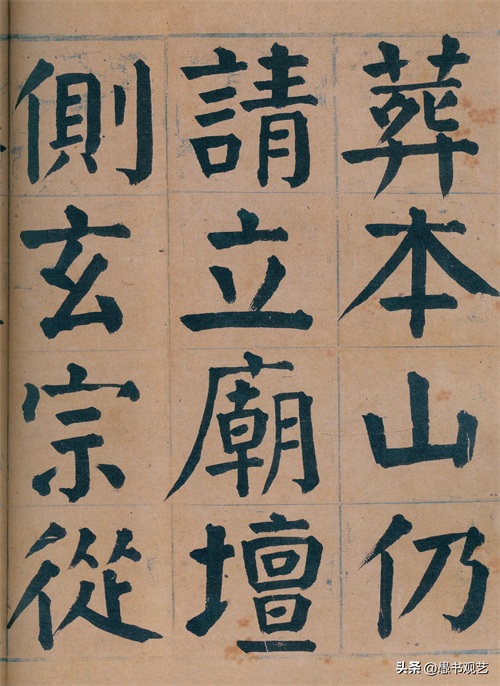 葬本山仍
請立廟壇
側玄宗從
头条 @愚书观艺